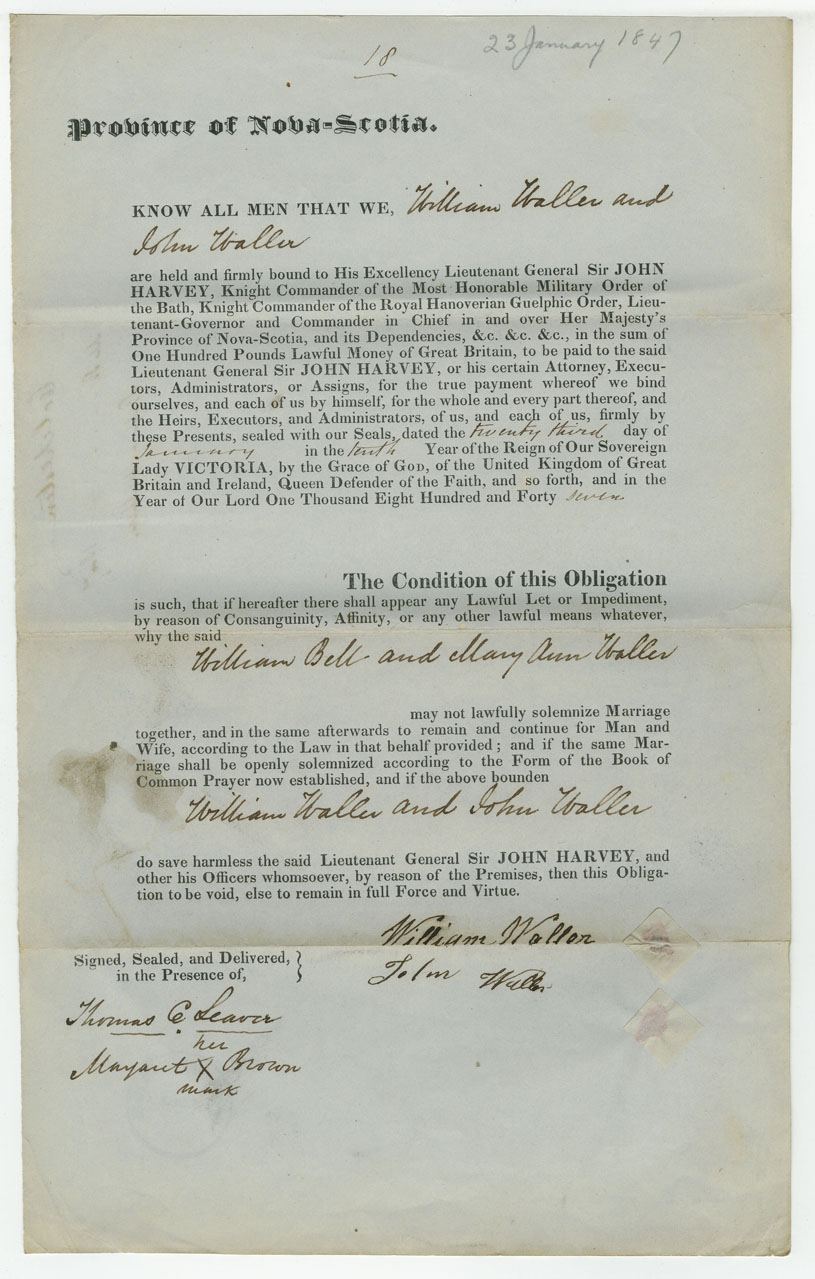 18
23 January 1847
Province of Nova-Scotia.
KNOW ALL MEN THAT WE, William Waller and
John Waller
are held and firmly bound to His Excellency Lieutenant General Sir JOHN
HARVEY, Knight Commander of the Most Honorable Military Order of
the Bath, Knight Commander of the Royal Hanoverian Guelphic Order, Lieu-
tenant-Governor and Commander in Chief in and over Her Majesty's
Province of Nova-Scotia, and its Dependencies, &c. &c. &c., in the sum of
One Hundred Pounds Lawful Money of Great Britain, to be paid to the said
Lieutenant General Sir JOHN HARVEY, or his certain Attorney, Execu-
tors, Administrators, or Assigns, for the true payment whereof we bind
ourselves, and each of us by himself, for the whole and every part thereof, and
the Heirs, Executors, and Administrators, of us, and each of us, firmly by
these Presents, sealed with our Seals, dated the twenty third day of
January in the tenth Year of the Reign of Our Sovereign
Lady VICTORIA, by the Grace of God, of the United Kingdom of Great
Britain and Ireland, Queen Defender of the Faith, and so forth, and in the
Year of Our Lord One Thousand Eight Hundred and Forty seven
The Condition of this Obligation
is such, that if hereafter there shall appear any Lawful Let or Impediment,
by reason of Consanguinity, Affinity, or any other lawful means whatever,
why the said
William Bell and Mary Ann Waller
may not lawfully solemnize Marriage
together, and in the same afterwards to remain and continue for Man and
Wife, according to the Law in that behalf provided; and if the same Mar-
riage shall be openly solemnized according to the Form of the Book of
Common Prayer now established, and if the above bounden
William Waller and John Waller
do save harmless the said Lieutenant General Sir JOHN HARVEY, and
other his Officers whomsoever, by reason of the Premises, then this Obliga-
tion to be void, else to remain in full Force and Virtue.
William Waller
John Waller
Signed, Sealed, and Delivered, }
in the Presence of,
Thomas C Leaver
her
Margaret X Brown
mark